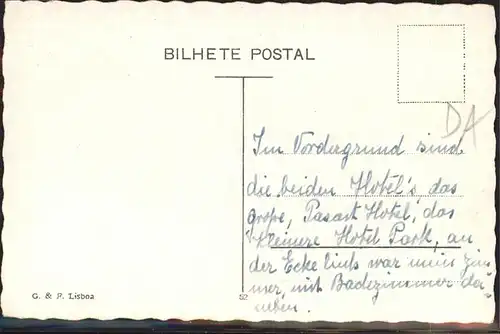 BILHETE POSTAL
DA
Im Vordergrund sind
die beiden Hotel's, das
große, Hotel, das
kleinere Hotel Park, an
der Ecke links war mein Zim
mer, mit Badezimmer da-
neben.
G. & F. Lisboa
52